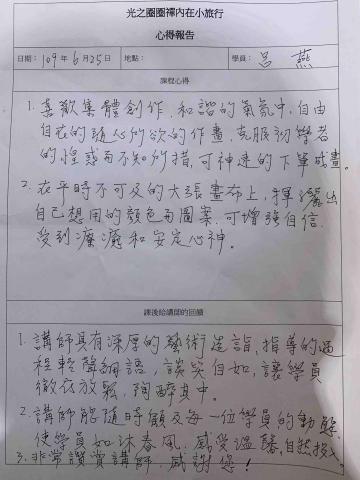 光之圈圈禪內在小旅行
心得報告
日期：109年6月25日 地點： 學員：呂燕
課程心得
1. 喜歡集體創作，和諧的氣氛中，自由
自在的隨心所欲的作畫，克服初學者
的惶惑而不知所措，可神速的下筆成畫。
2. 在平時不可及的大張畫布上，揮灑出
自己想用的顏色再圖案，可增強自信
受到療癒和安定心神。
課後給講師的回饋
1. 講師具有深厚的藝術造詣，指導的過
程輕聲細語，談笑自如，讓學員
徹底放鬆，陶醉其中。
2. 講師能隨時顧及每一位學員的動態
使學員如沐春風，感受溫馨，自然投入
3. 非常讚賞講師，感謝您！